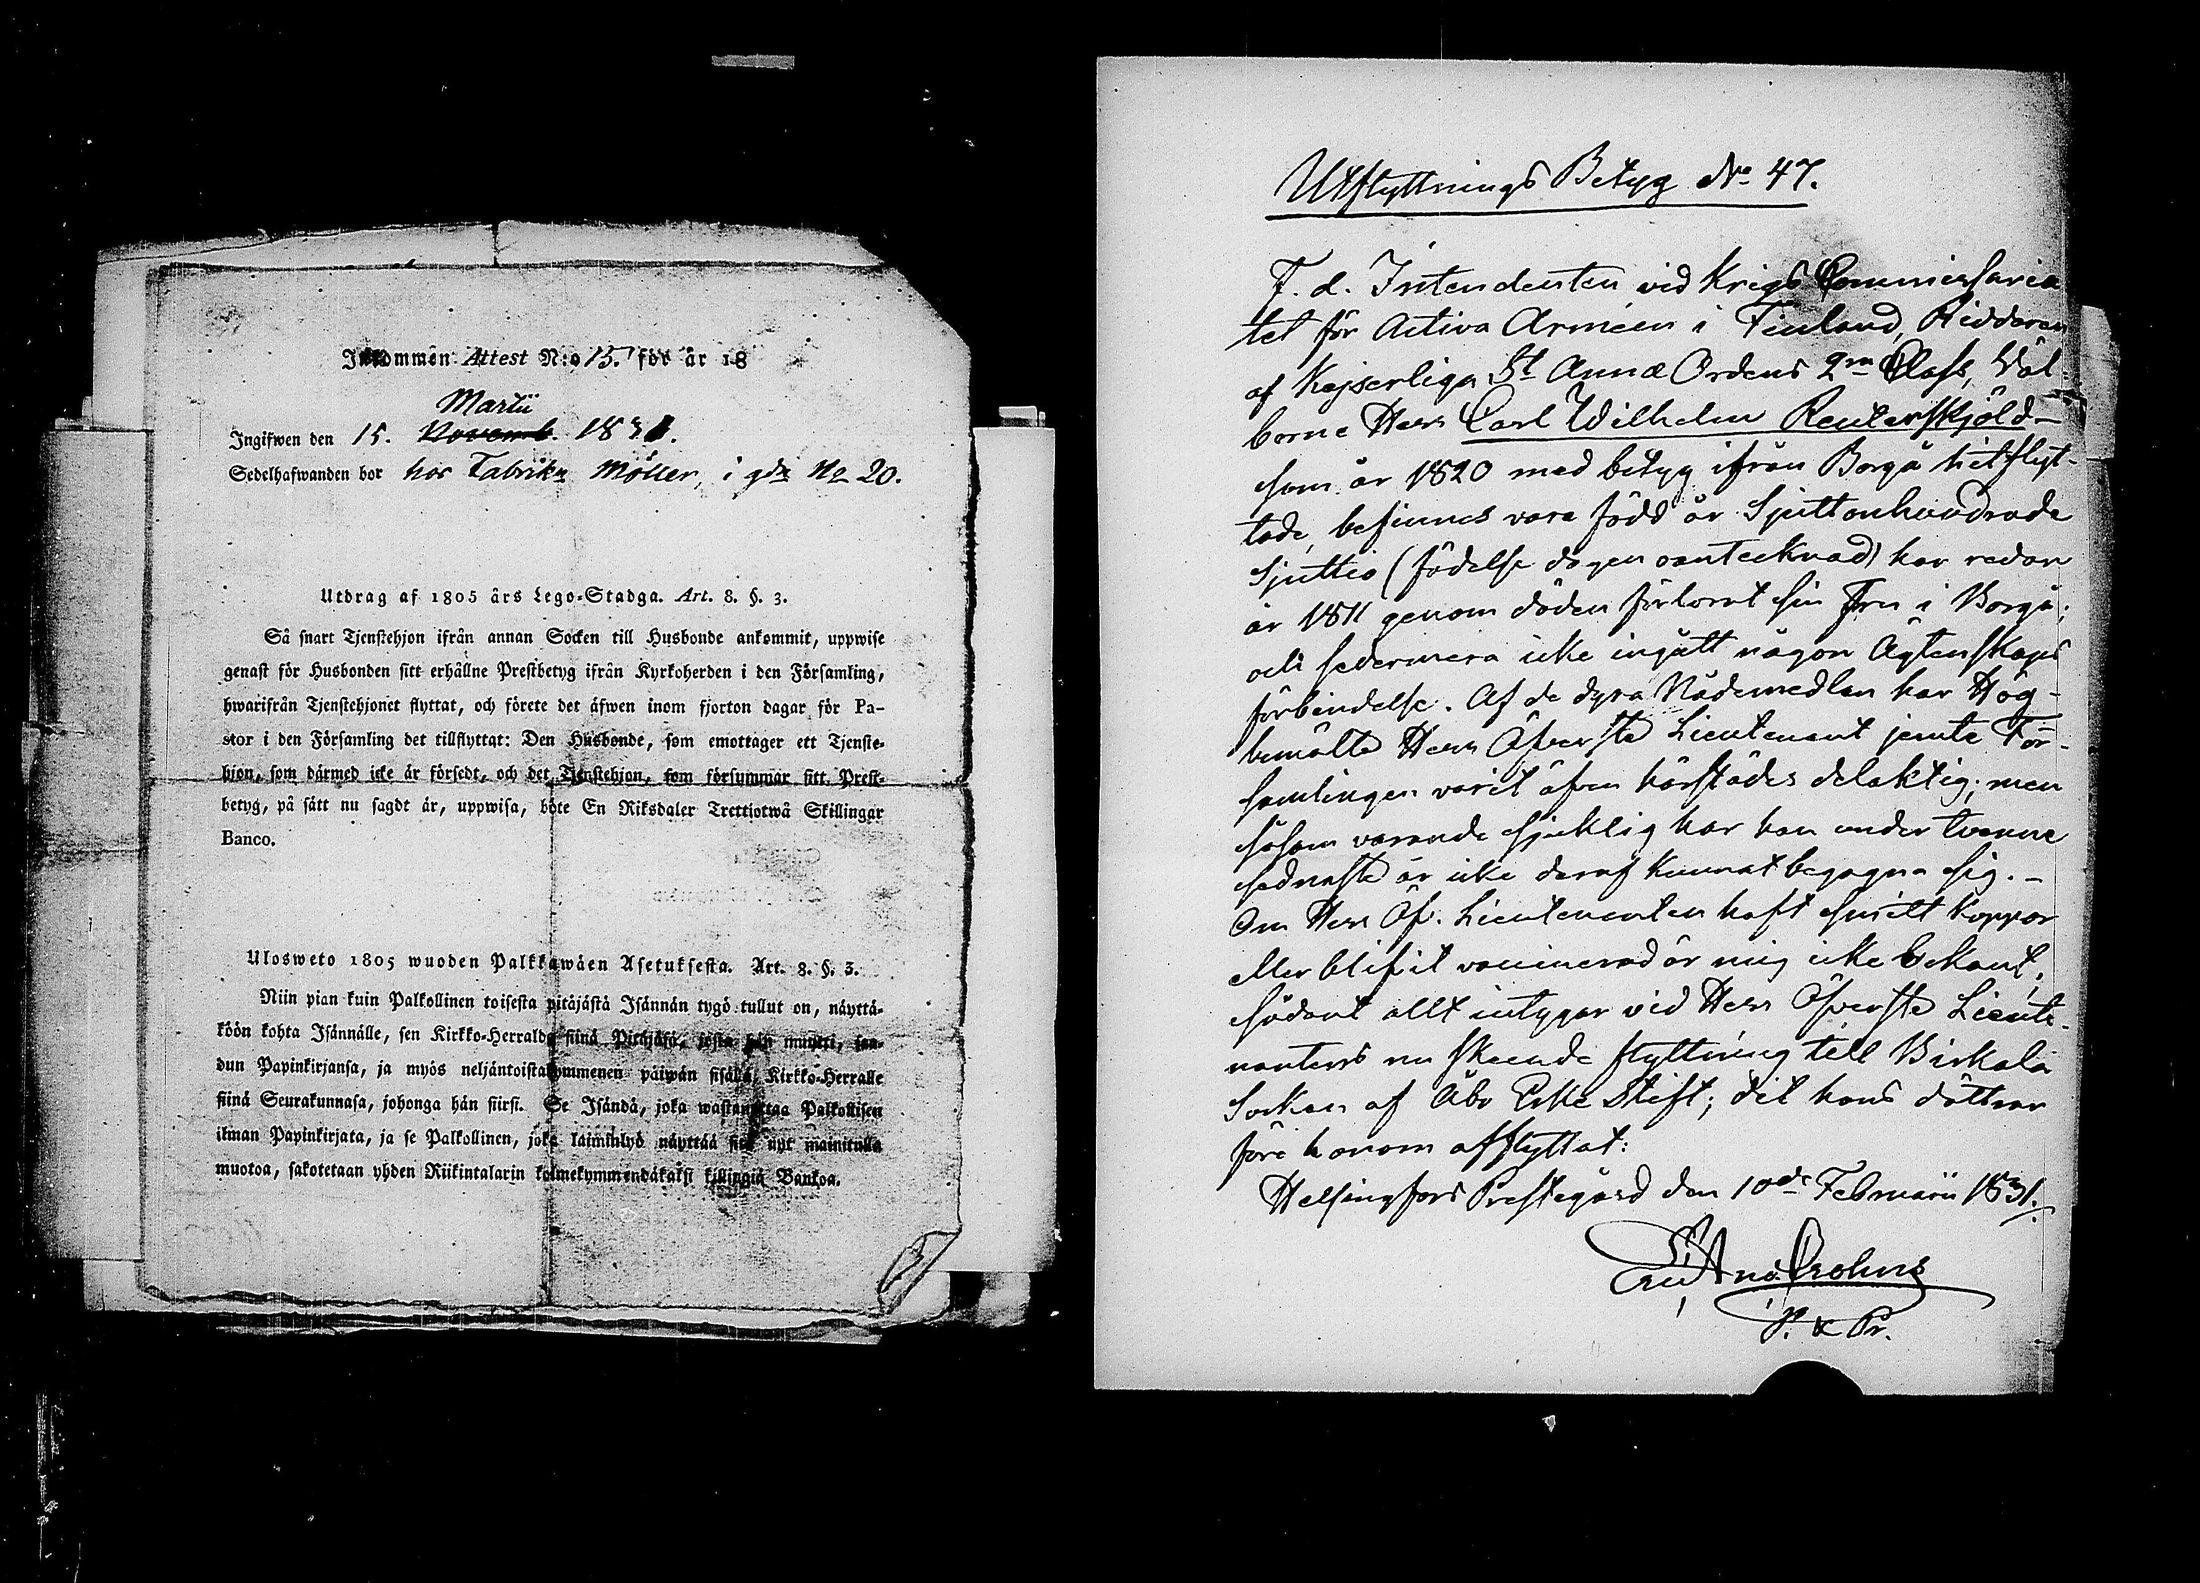 Inkommen Attest N:o 15. för år 18
Martii
Ingifwen den 15. Novemb. 1831.
Sedelhafwanden bor hos Fabrikn Möller, i gdn No 20.
Utdrag af 1805 års Lego-Stadga. Art. 8. §. 3.
Så snart Tjenstehjon ifrån annan Socken till Husbonde ankommit, uppwise
genast för Husbonden sitt erhållne Prestbetyg ifrån Kyrkoherden i den Församling,
hwarifrån Tjenstehjonet flyttat, och förete det äfwen inom fjorton dagar för Pa-
stor i den Församling det tillflyttat: Den Husbonde, som emottager ett Tjenste-
hjon, som därmed icke är försedt, och det Tjenstehjon, som försummar sitt Prest-
betyg, på sätt nu sagdt är, uppwisa, böte En Riksdaler Trettiotwå Skillingar
Banco.
Ulosweto 1805 wuoden Palkkawäen Asetuksesta. Art. 8. §. 3.
Niin pian kuin Palkollinen toisesta pitäjästä Isännän tygö tullut on, näyttä-
köön kohta Isännälle, sen Kirkko-Herralda siinä Pitäjäsä, josta hän muutti, saa-
dun Papinkirjansa, ja myös neljäntoistakymmenen päiwän sisällä Kirkko-Herralle
siinä Seurakunnasa, johonga hän siirsi. Se Isändä, joka wastanottaa Palkollisen
ilman Papinkirjata, ja se Palkollinen, joka laiminlyö näyttää sitä nyt mainitulla
muotoa, sakotetaan yhden Riikintalarin kolmekymmendäkaksi killingiä Bankoa.
Utflyttnings Betyg No 47.
F. d. Intendenten vid Krigs Commissaria
tet för Activa Arméen i Finland, Riddaren
af Kejserliga St Annæ Ordens 2ra Class, Väl-
borne Herr Carl Wilhelm Reuterskjöld—
som år 1820 med betyg ifrån Borgå hitflyt-
tade, befinnes vara född år Sjuttonhundrade
Sjuttio (födelse dagen oantecknad) har redan
år 1811 genom döden förlorat sin Fru i Borgå;
och sedermera icke ingått någon Ägtenskaps
förbindelse. Af de dyra Nådemedlen har Hög-
bemälte Herr Öfverste Lieutenant jemte För-
samlingen varit äfven härstädes delaktig; men
såsom varande sjuklig har han under tvenne
sednaste år icke deraf kunnat begagna sig. –
Om Herr Öf. Lieutenanten haft smitt koppor
eller blifvit vaccinerad är mig icke bekant,
sådant allt intygar vid Herr Öfverste Lieute-
nantens nu skeende flyttning till Birkala
Socken af Åbo Erke Stift; dit hans döttrar
före honom afflyttat:
Helsingfors Prestegård den 10de Februarii 1831.
Crohns
P. & Pr.